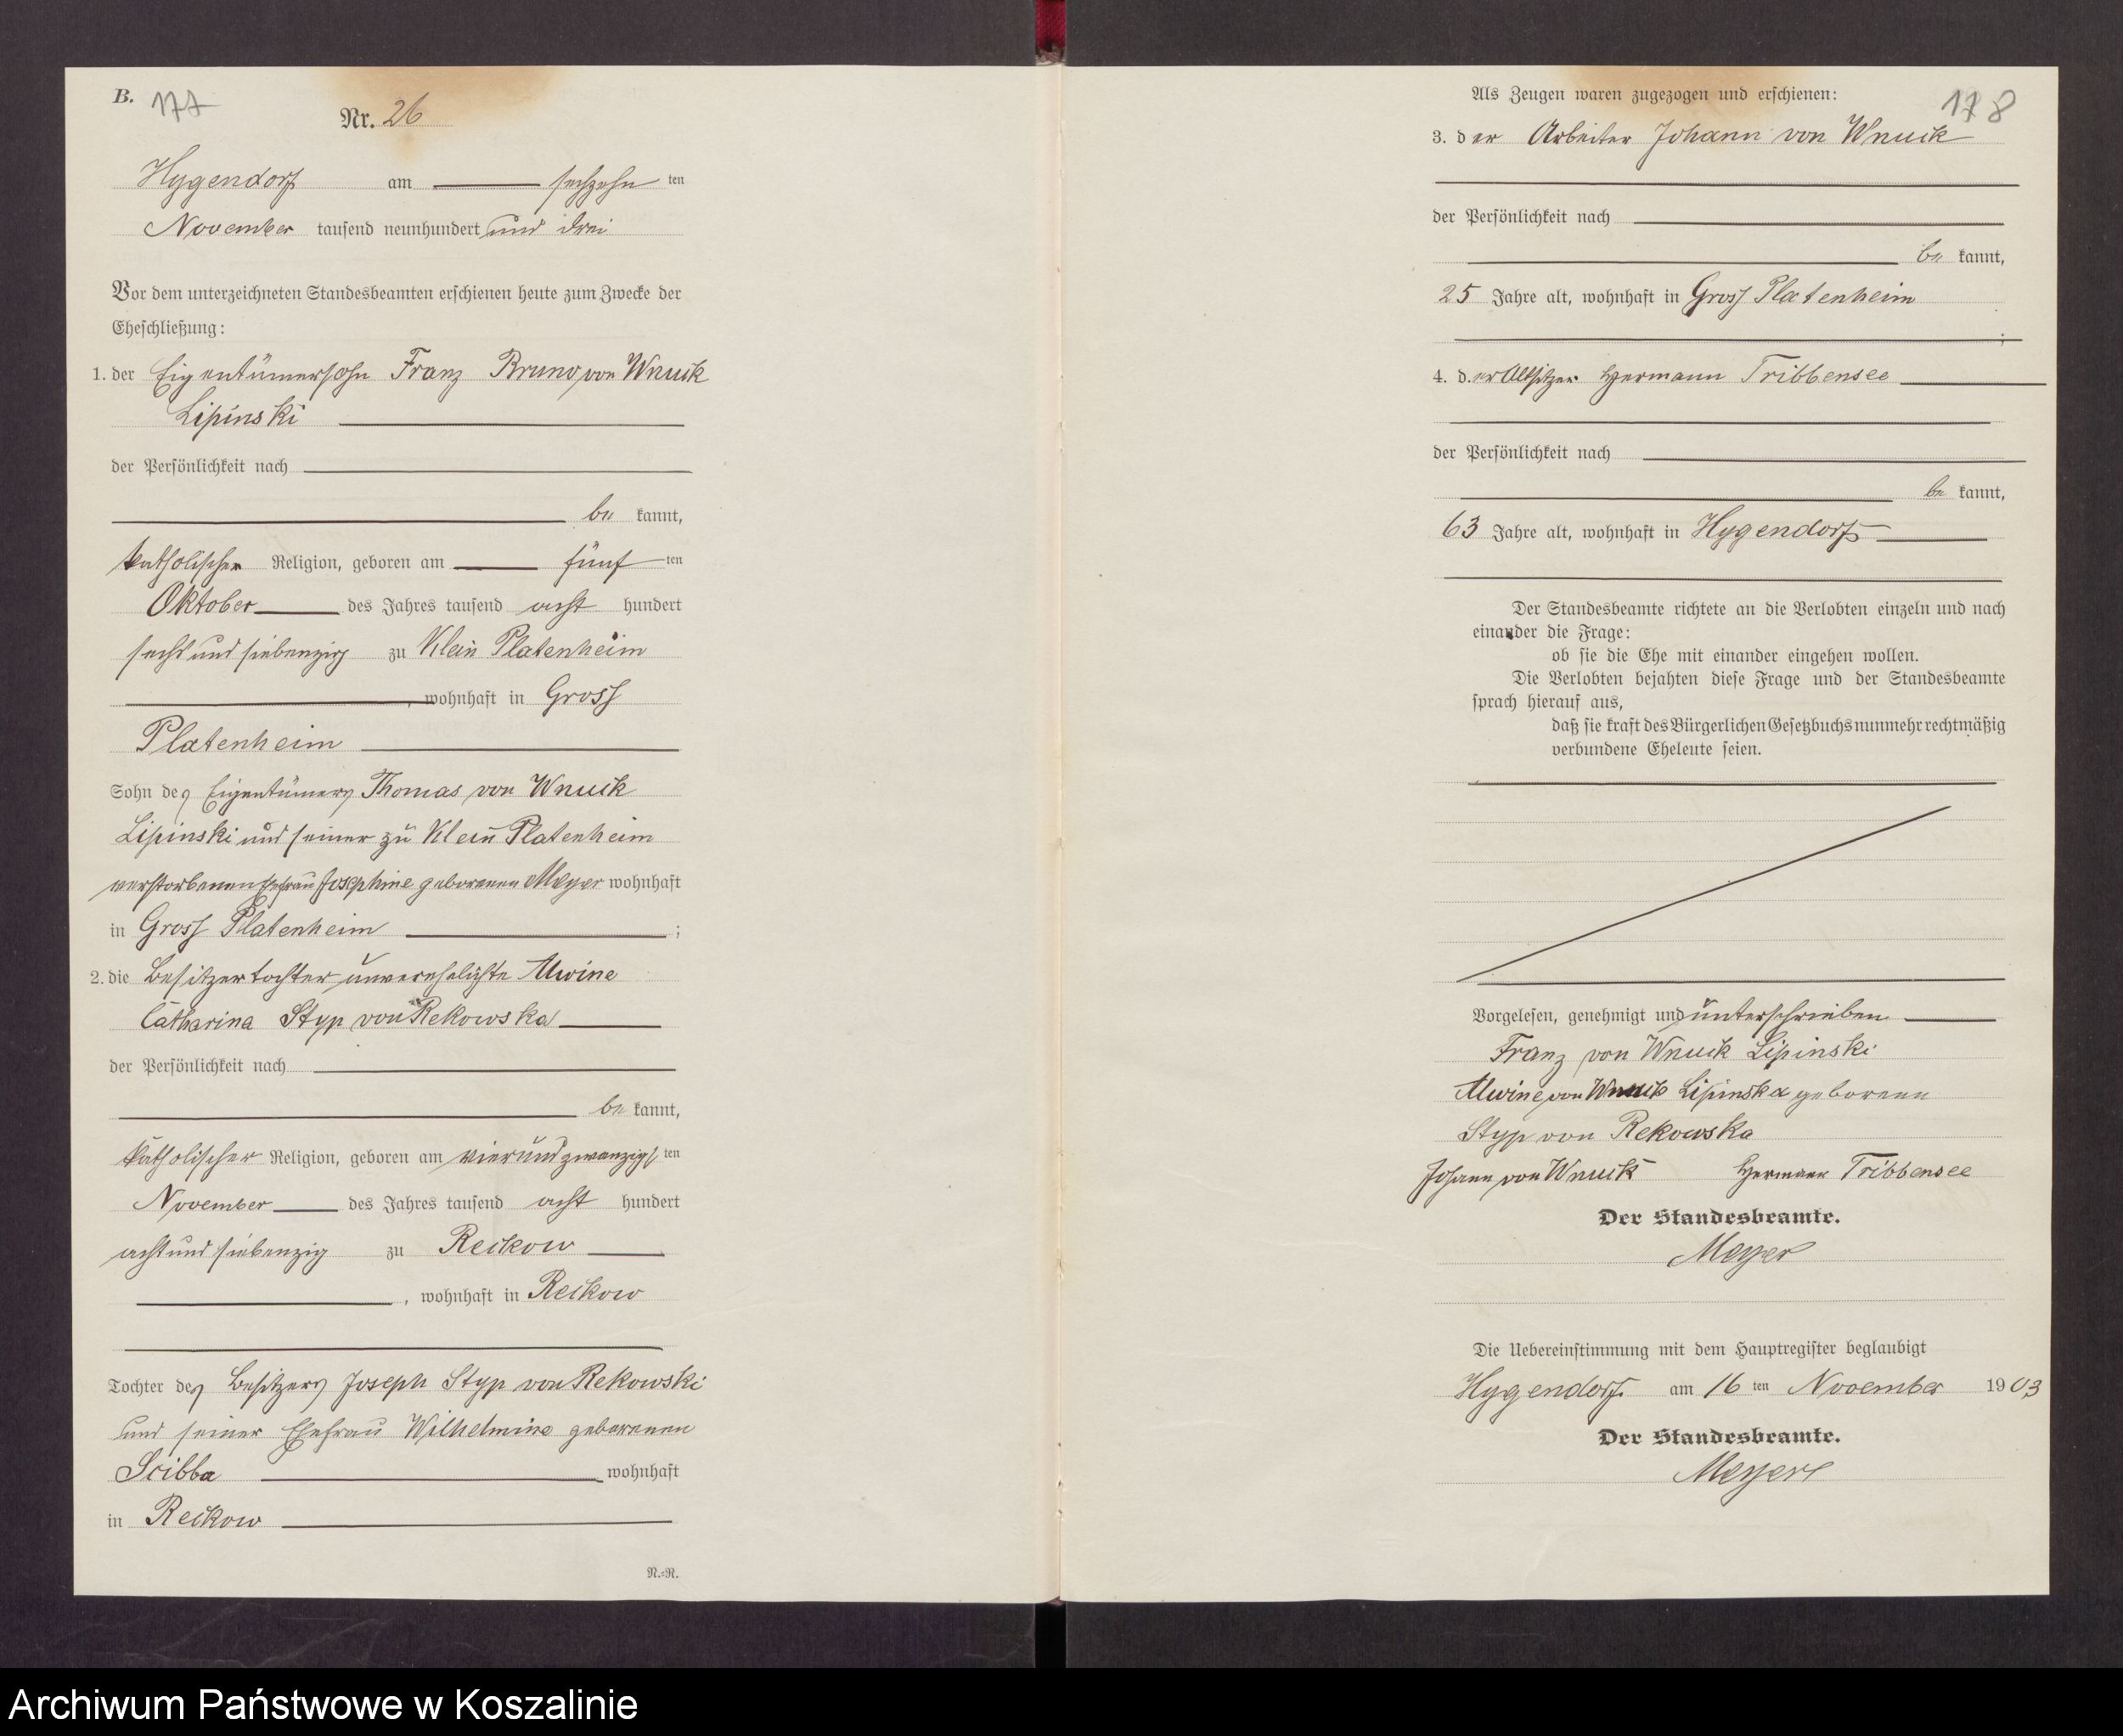 B. 177
Nr. 26
Hygendorf am sechzehn ten
November tausend neunhundert und drei
Vor dem unterzeichneten Standesbeamten erschienen heute zum Zwecke der
Eheschließung:
1. der Eigentümersohn Franz Bruno von Wnuck
Lipinski
der Persönlichkeit nach
be kannt,
katholischer Religion, geboren am fünf ten
Oktober des Jahres tausend acht hundert
sechs und siebenzig zu Klein Platenheim
, wohnhaft in Gross
Platenheim
Sohn des Eigentümers Thomas von Wnuck
Lipinski und seiner zu Klein Platenheim
verstorbenen Ehefrau Josephine geborenen Meyer wohnhaft
in Gross Platenheim ;
2. die Besitzertochter unverehelichte Alwine
Catharina Styp von Rekowska
der Persönlichkeit nach
be kannt,
katholischer Religion, geboren am vierundzwanzigs ten
November des Jahres tausend acht hundert
acht und siebenzig zu Reckow
, wohnhaft in Reckow
Tochter des Besitzers Joseph Styp von Rekowski
und seiner Ehefrau Wilhelmine geborenen
Scibba wohnhaft
in Reckow
N.=R.
Als Zeugen waren zugezogen und erschienen:
178
3. d er Arbeiter Johann von Wnuck
der Persönlichkeit nach
be kannt,
25 Jahre alt, wohnhaft in Gross Platenheim
;
4. d. er Altsitzer Hermann Tribbensee
der Persönlichkeit nach
be kannt,
63 Jahre alt, wohnhaft in Hygendorf
Der Standesbeamte richtete an die Verlobten einzeln und nach
einander die Frage:
ob sie die Ehe mit einander eingehen wollen.
Die Verlobten bejahten diese Frage und der Standesbeamte
sprach hierauf aus,
daß sie kraft des Bürgerlichen Gesetzbuchs nunmehr rechtmäßig
verbundene Eheleute seien.
Vorgelesen, genehmigt und unterschrieben
Franz von Wnuck Lipinski
Alwine von Wnuck Lipinska geborene
Styp von Rekowska
Johann von Wnuck Hermann Tribbensee
Der Standesbeamte.
Meyer
Die Uebereinstimmung mit dem Hauptregister beglaubigt
Hygendorf am 16 ten November 1903
Der Standesbeamte.
Meyer
Archiwum Państwowe w Koszalinie